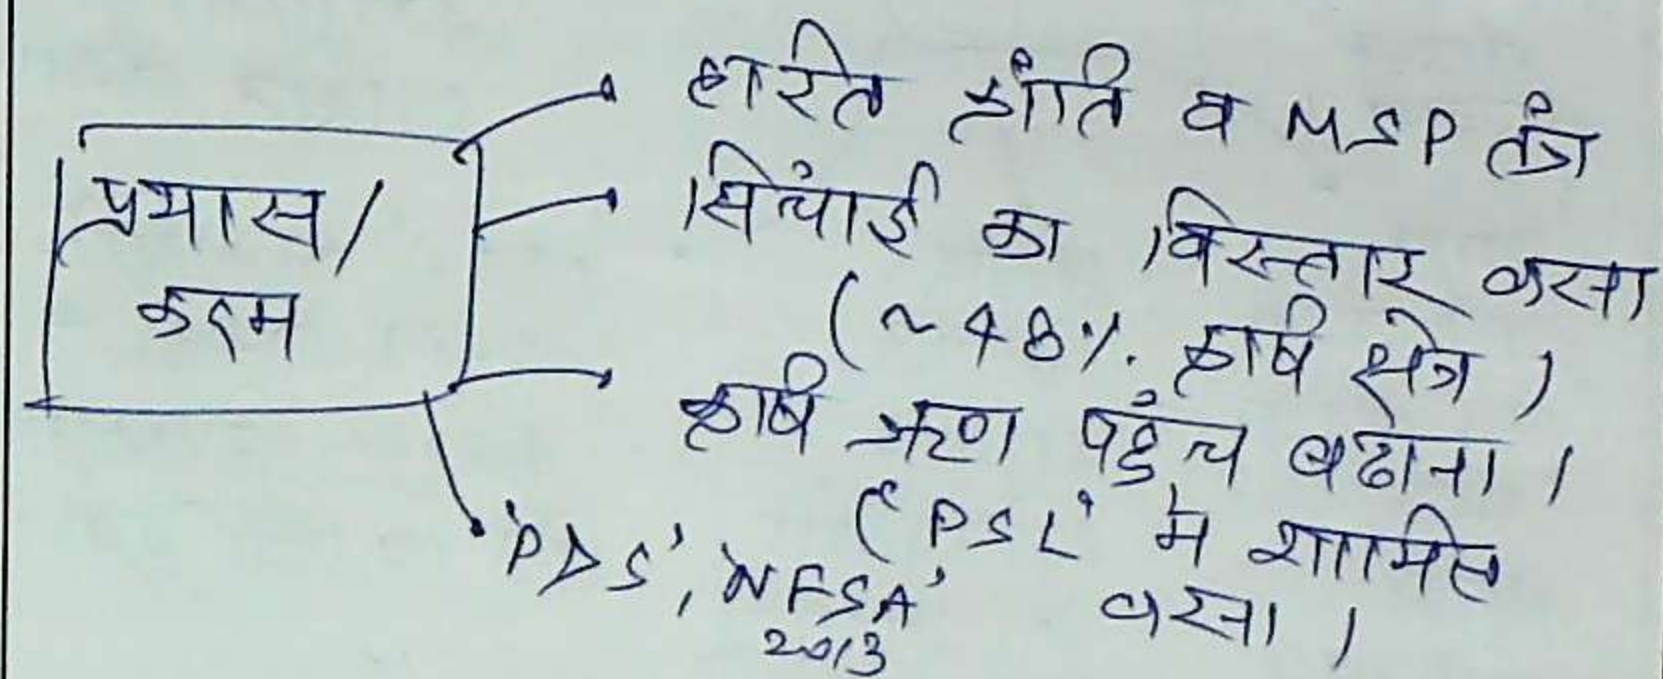 प्रयास/
कदम
हरित क्रांति व MSP तंत्र
सिंचाई का विस्तार करना
(~48% कृषि क्षेत्र)
कृषि ऋण पहुंच बढाना।
('PSL' में शामिल
करना।
'PDS', 'NFSA'
2013